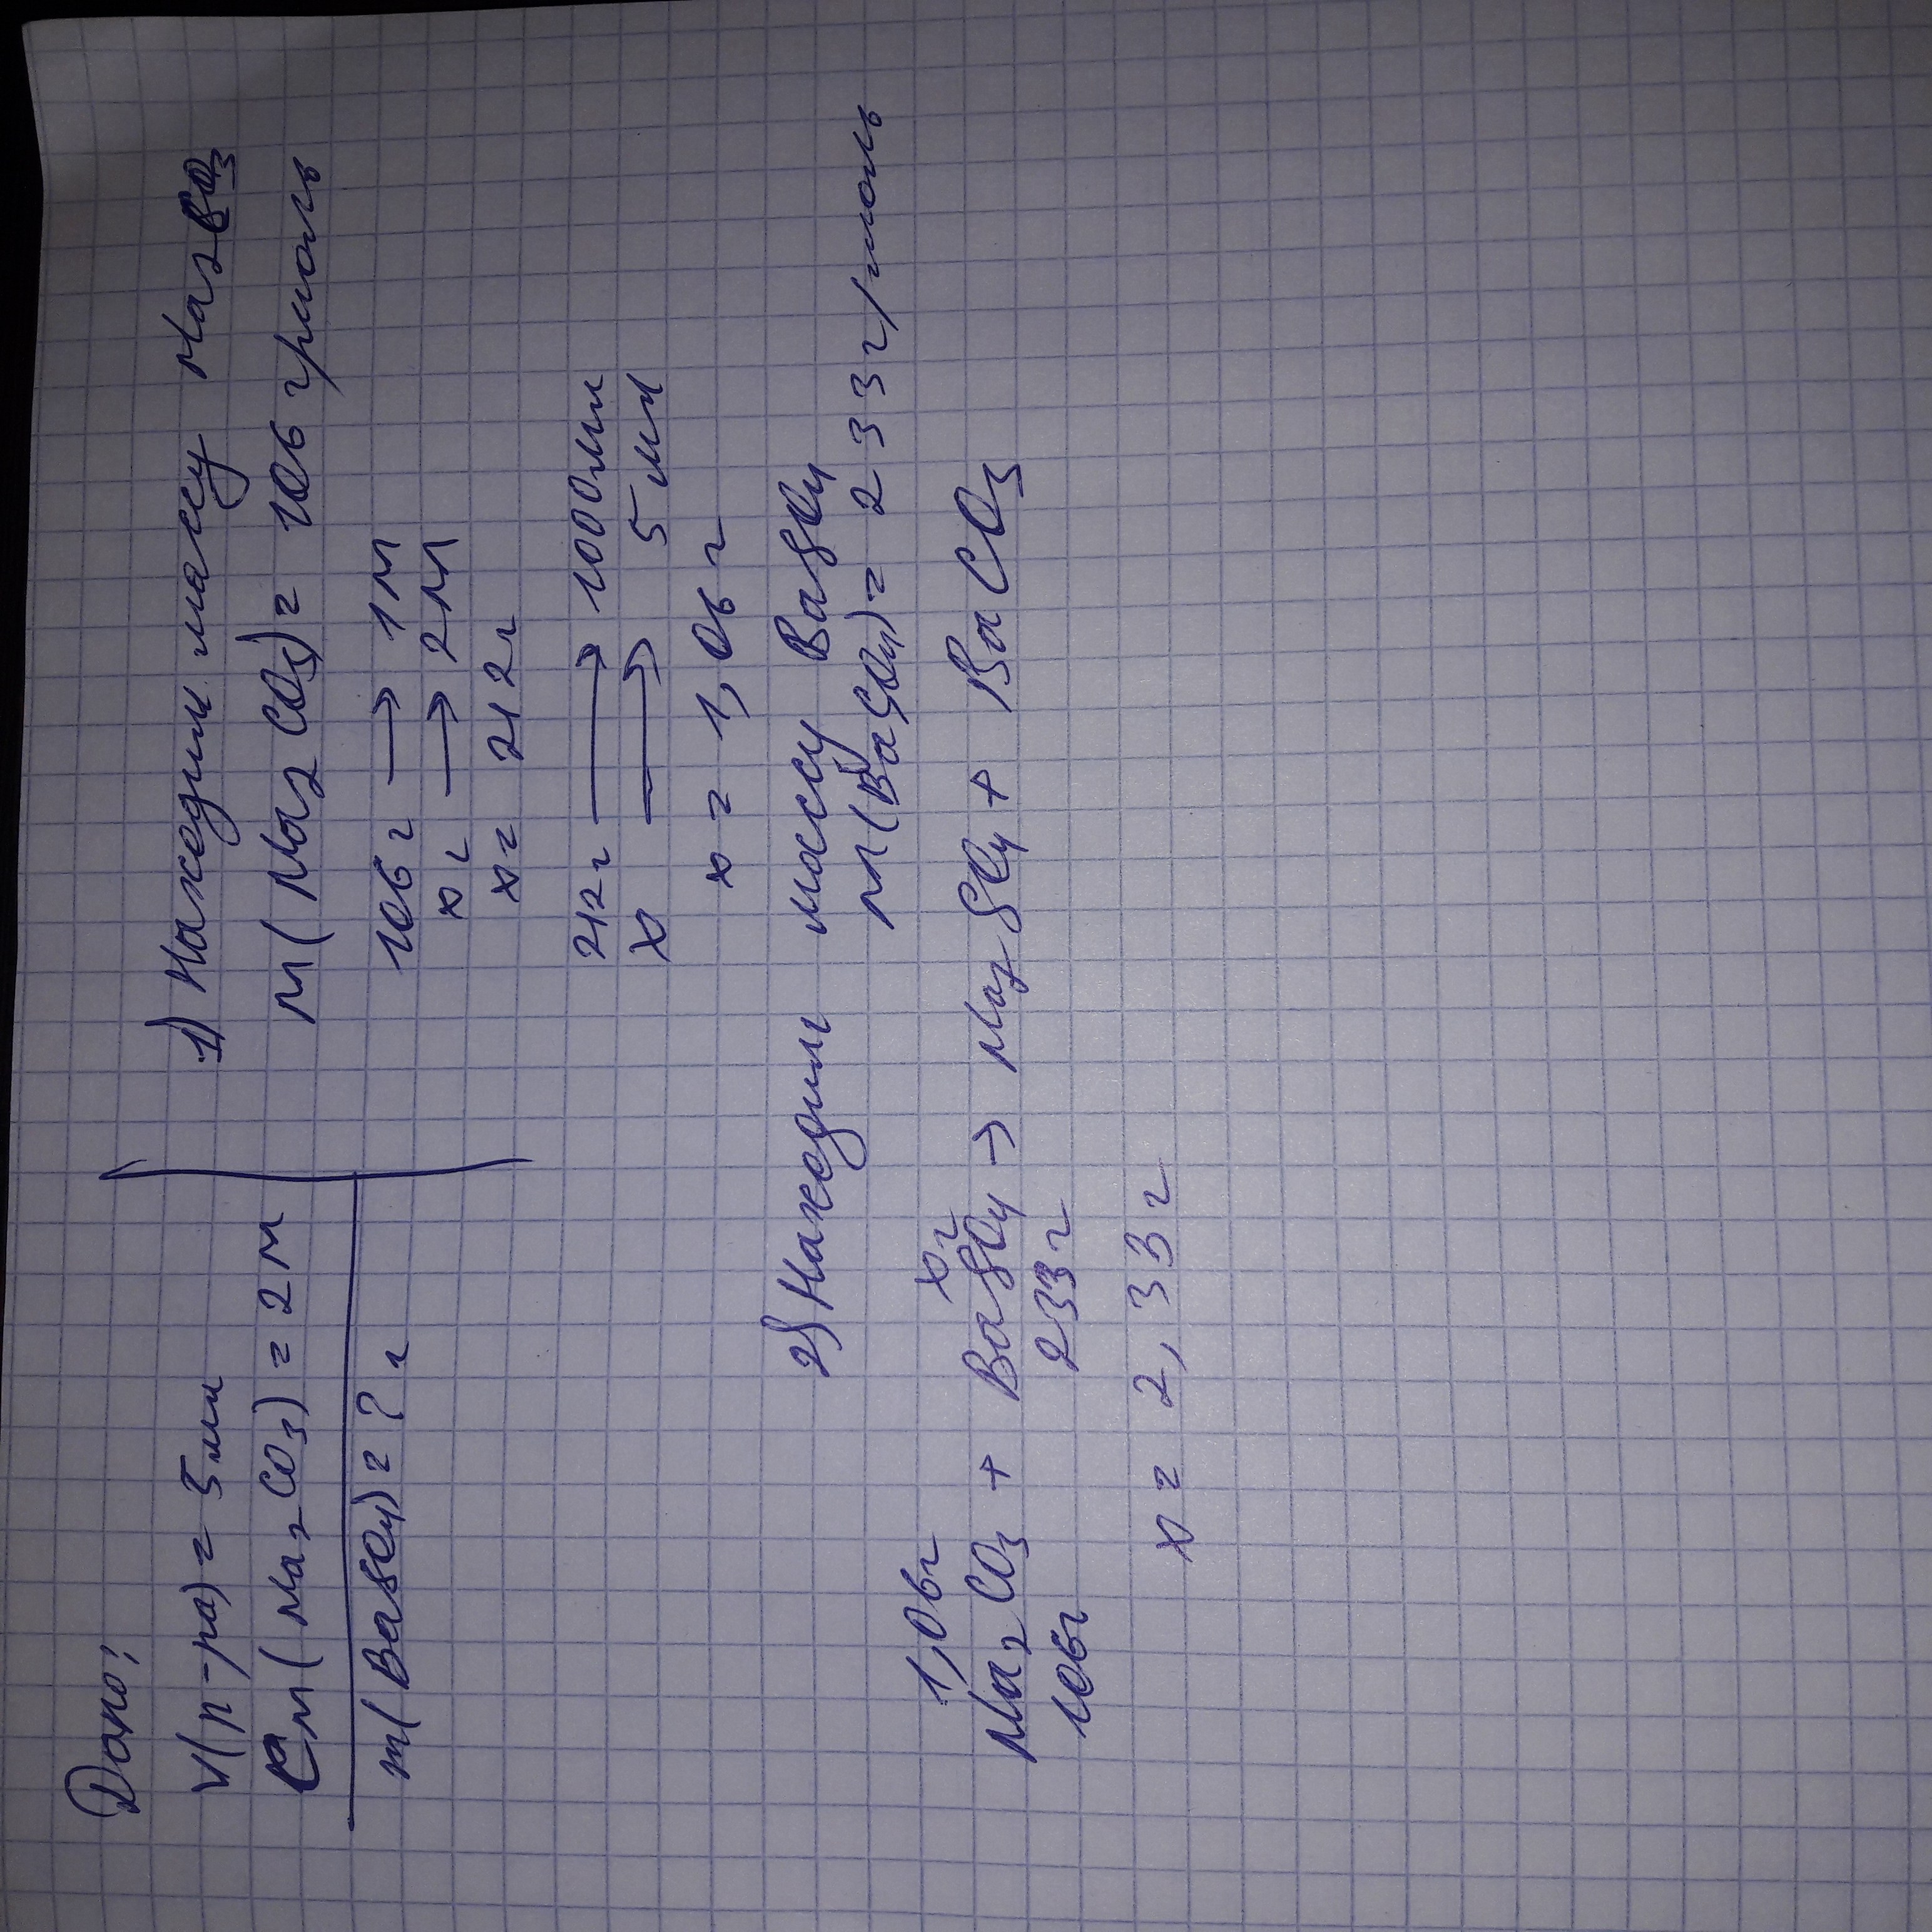 Дано:
V(р-ра) = 5 мл
CM(Na2CO3) = 2М
m(BaSO4) = ? г
1) Находим массу Na2CO3
M(Na2CO3) = 106 г/моль
106 г → 1М
x г → 2М
x = 212 г
212 г → 1000 мл
x → 5 мл
x = 1,06 г
2) Находим массу BaSO4
M(BaSO4) = 233 г/моль
1,06г x г
Na2CO3 + BaSO4 → Na2SO4 + BaCO3
106г 233 г
x = 2,33 г